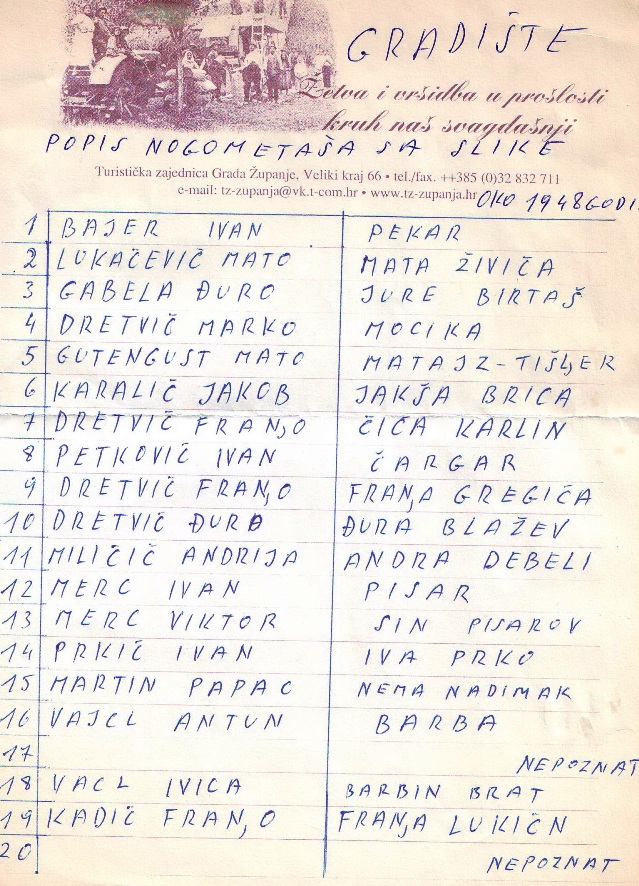 GRADIŠTE
Žetva i vršidba u prošlosti
kruh naš svagdašnji
POPIS NOGOMETAŠA SA SLIKE
Turistička zajednica Grada Županje, Veliki kraj 66 • tel./fax. ++385 (0)32 832 711
e-mail: tz-zupanja@vk.t-com.hr • www.tz-zupanja.hr
OKO 1948 GODI.
1 BAJER IVAN PEKAR
2 LUKAČEVIČ MATO MATA ŽIVIČA
3 GABELA ĐURO JURE BIRTAŠ
4 DRETVIČ MARKO MOCIKA
5 GUTENGUST MATO MATA JZ-TIŠLJER
6 KARALIČ JAKOB JAKŠA BRICA
7 DRETVIČ FRANJO ČIČA KARLIN
8 PETKOVIČ IVAN ČARGAR
9 DRETVIČ FRANJO FRANJA GREGIČA
10 DRETVIČ ĐURO ĐURA BLAŽEV
11 MILIČIČ ANDRIJA ANDRA DEBELI
12 MERC IVAN PISAR
13 MERC VIKTOR SIN PISAROV
14 PRKIČ IVAN IVA PRKO
15 MARTIN PAPAC NEMA NADIMAK
16 VAJCL ANTUN BARBA
17 NEPOZNAT
18 VACL IVICA BARBIN BRAT
19 KADIČ FRANJO FRANJA LUKIČN
20 NEPOZNAT